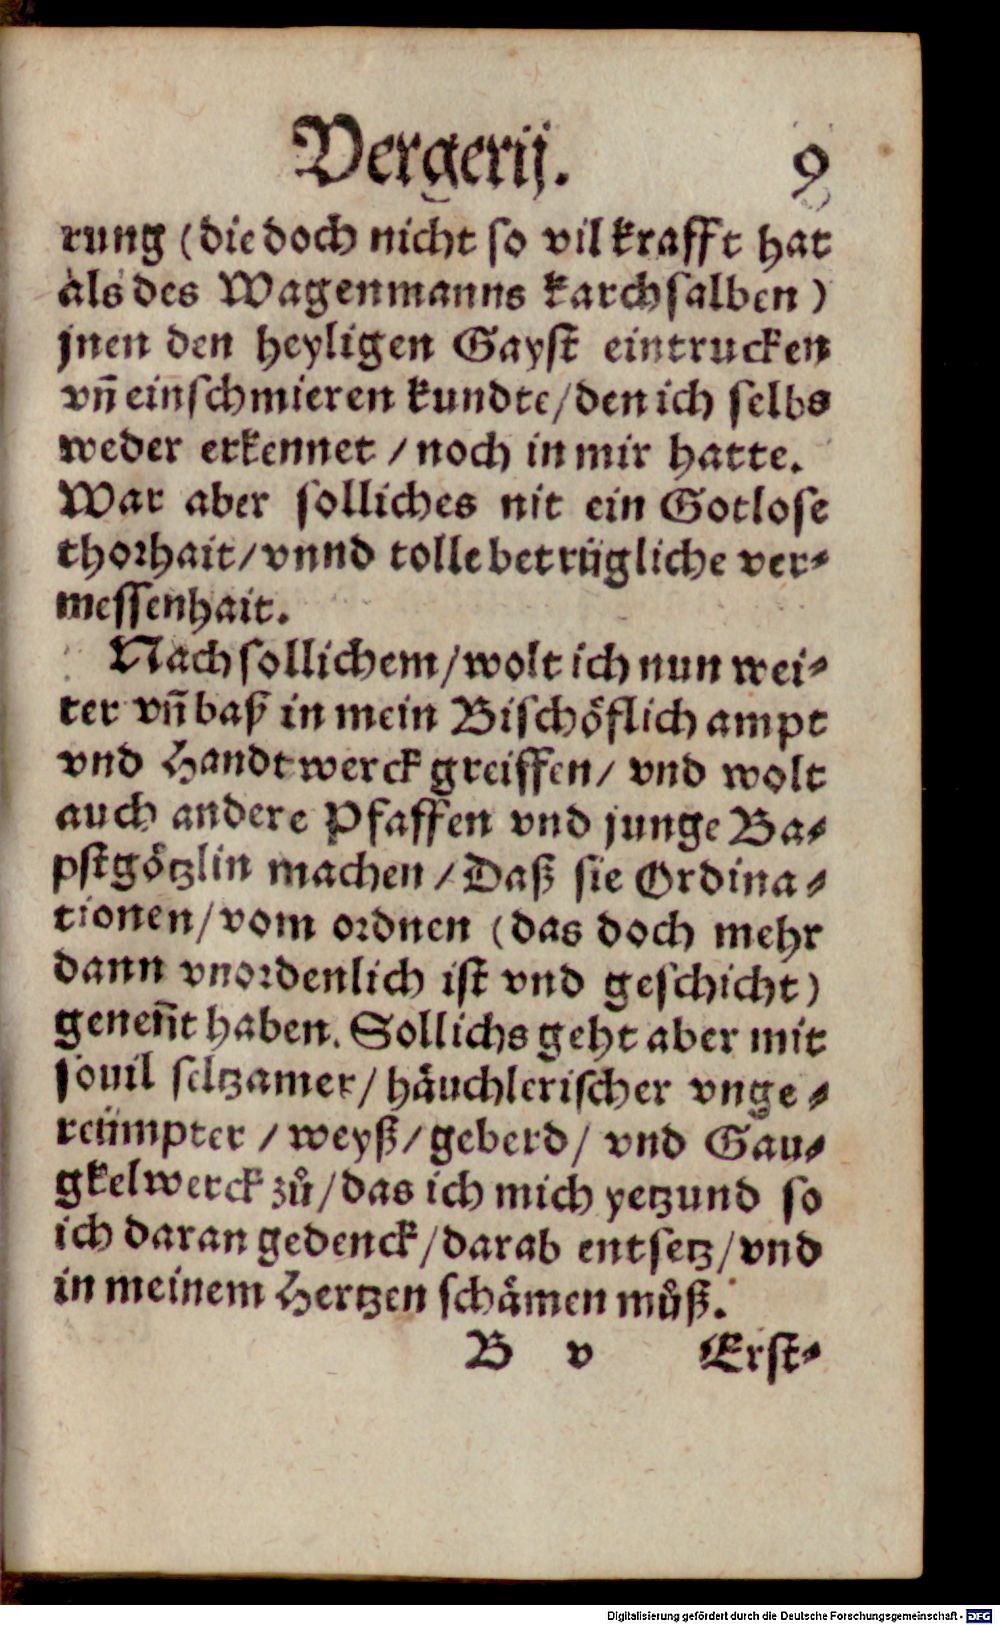 Vergerij. 9
rung (die doch nicht so vil krafft hat
als des Wagenmanns karchsalben)
jnen den heyligen Gayst eintrucken
vñ einschmieren kundte/den ich selbs
weder erkennet/noch in mir hatte.
War aber solliches nit ein Gotlose
thorhait/vnnd tolle betrügliche ver-
messenhait.
Nach sollichem/wolt ich nun wei-
ter vñ baß in mein Bischöflich ampt
vnd Handtwerck greiffen/ vnd wolt
auch andere Pfaffen vnd junge Ba-
pstgötzlin machen/Daß sie Ordina-
tionen/vom ordnen (das doch mehr
dann vnordenlich ist vnd geschicht)
geneñt haben. Sollichs geht aber mit
souil seltzamer/häuchlerischer vnge-
reümpter/weyß/geberd/ vnd Gau-
gkelwerck zů/das ich mich yetzund so
ich daran gedenck/darab entsetz/vnd
in meinem Hertzen schämen můß.
B v Erst-
Digitalisierung gefördert durch die Deutsche Forschungsgemeinschaft - DFG